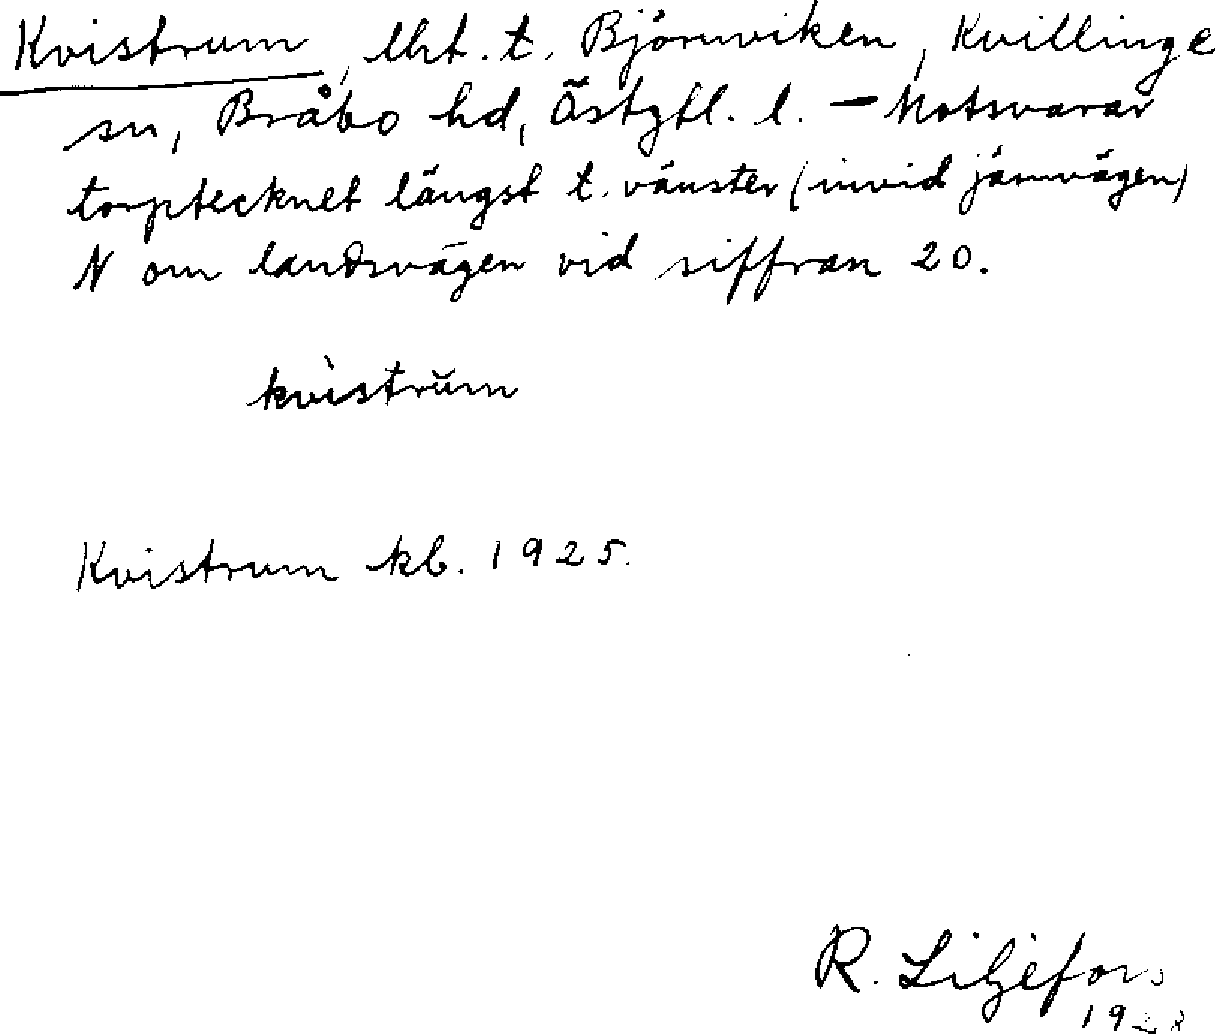 Kvistrum, lht. t. Björnviken, Kvillinge
sn, Bråbo hd, Östgtl. l. — Motsvarar
torptecknet längst t. vänster (invid järnvägen)
N om landsvägen vid siffran 20.
kvìstrŭm
Kvistrum kb. 1925.
R. Liljefors